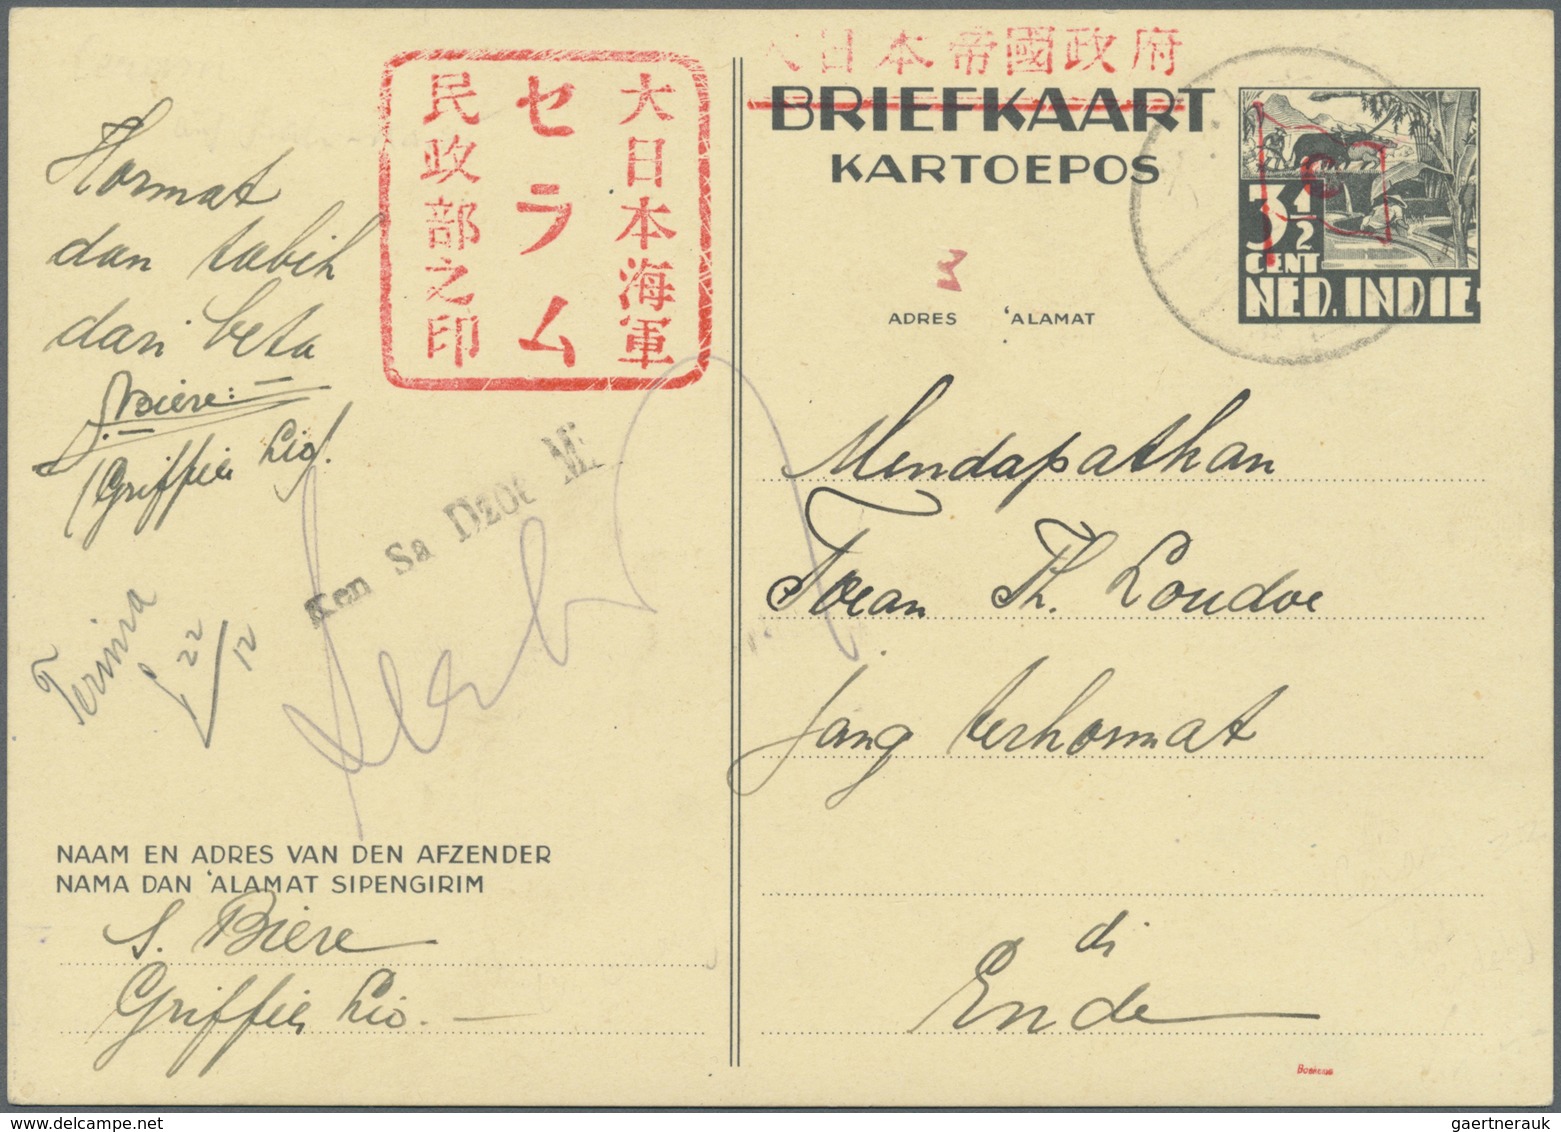 Hormat
dan tabih
dari beta
S. Biere:
Griffier Lio.
Terima
22/12
大日本海軍
セラム
民政部之印
Ken Sa Dzoe Mi
NAAM EN ADRES VAN DEN AFZENDER
NAMA DAN 'ALAMAT SIPENGIRIM
S. Biere
Griffier Lio.
大日本帝國政府
BRIEFKAART
KARTOEPOS
3½
CENT
NED. INDIE
ADRES 'ALAMAT
Mendapatkan
Toean Th. Loudoe
jang terhormat
di
Ende
gaertnerauk @ delcampe.net